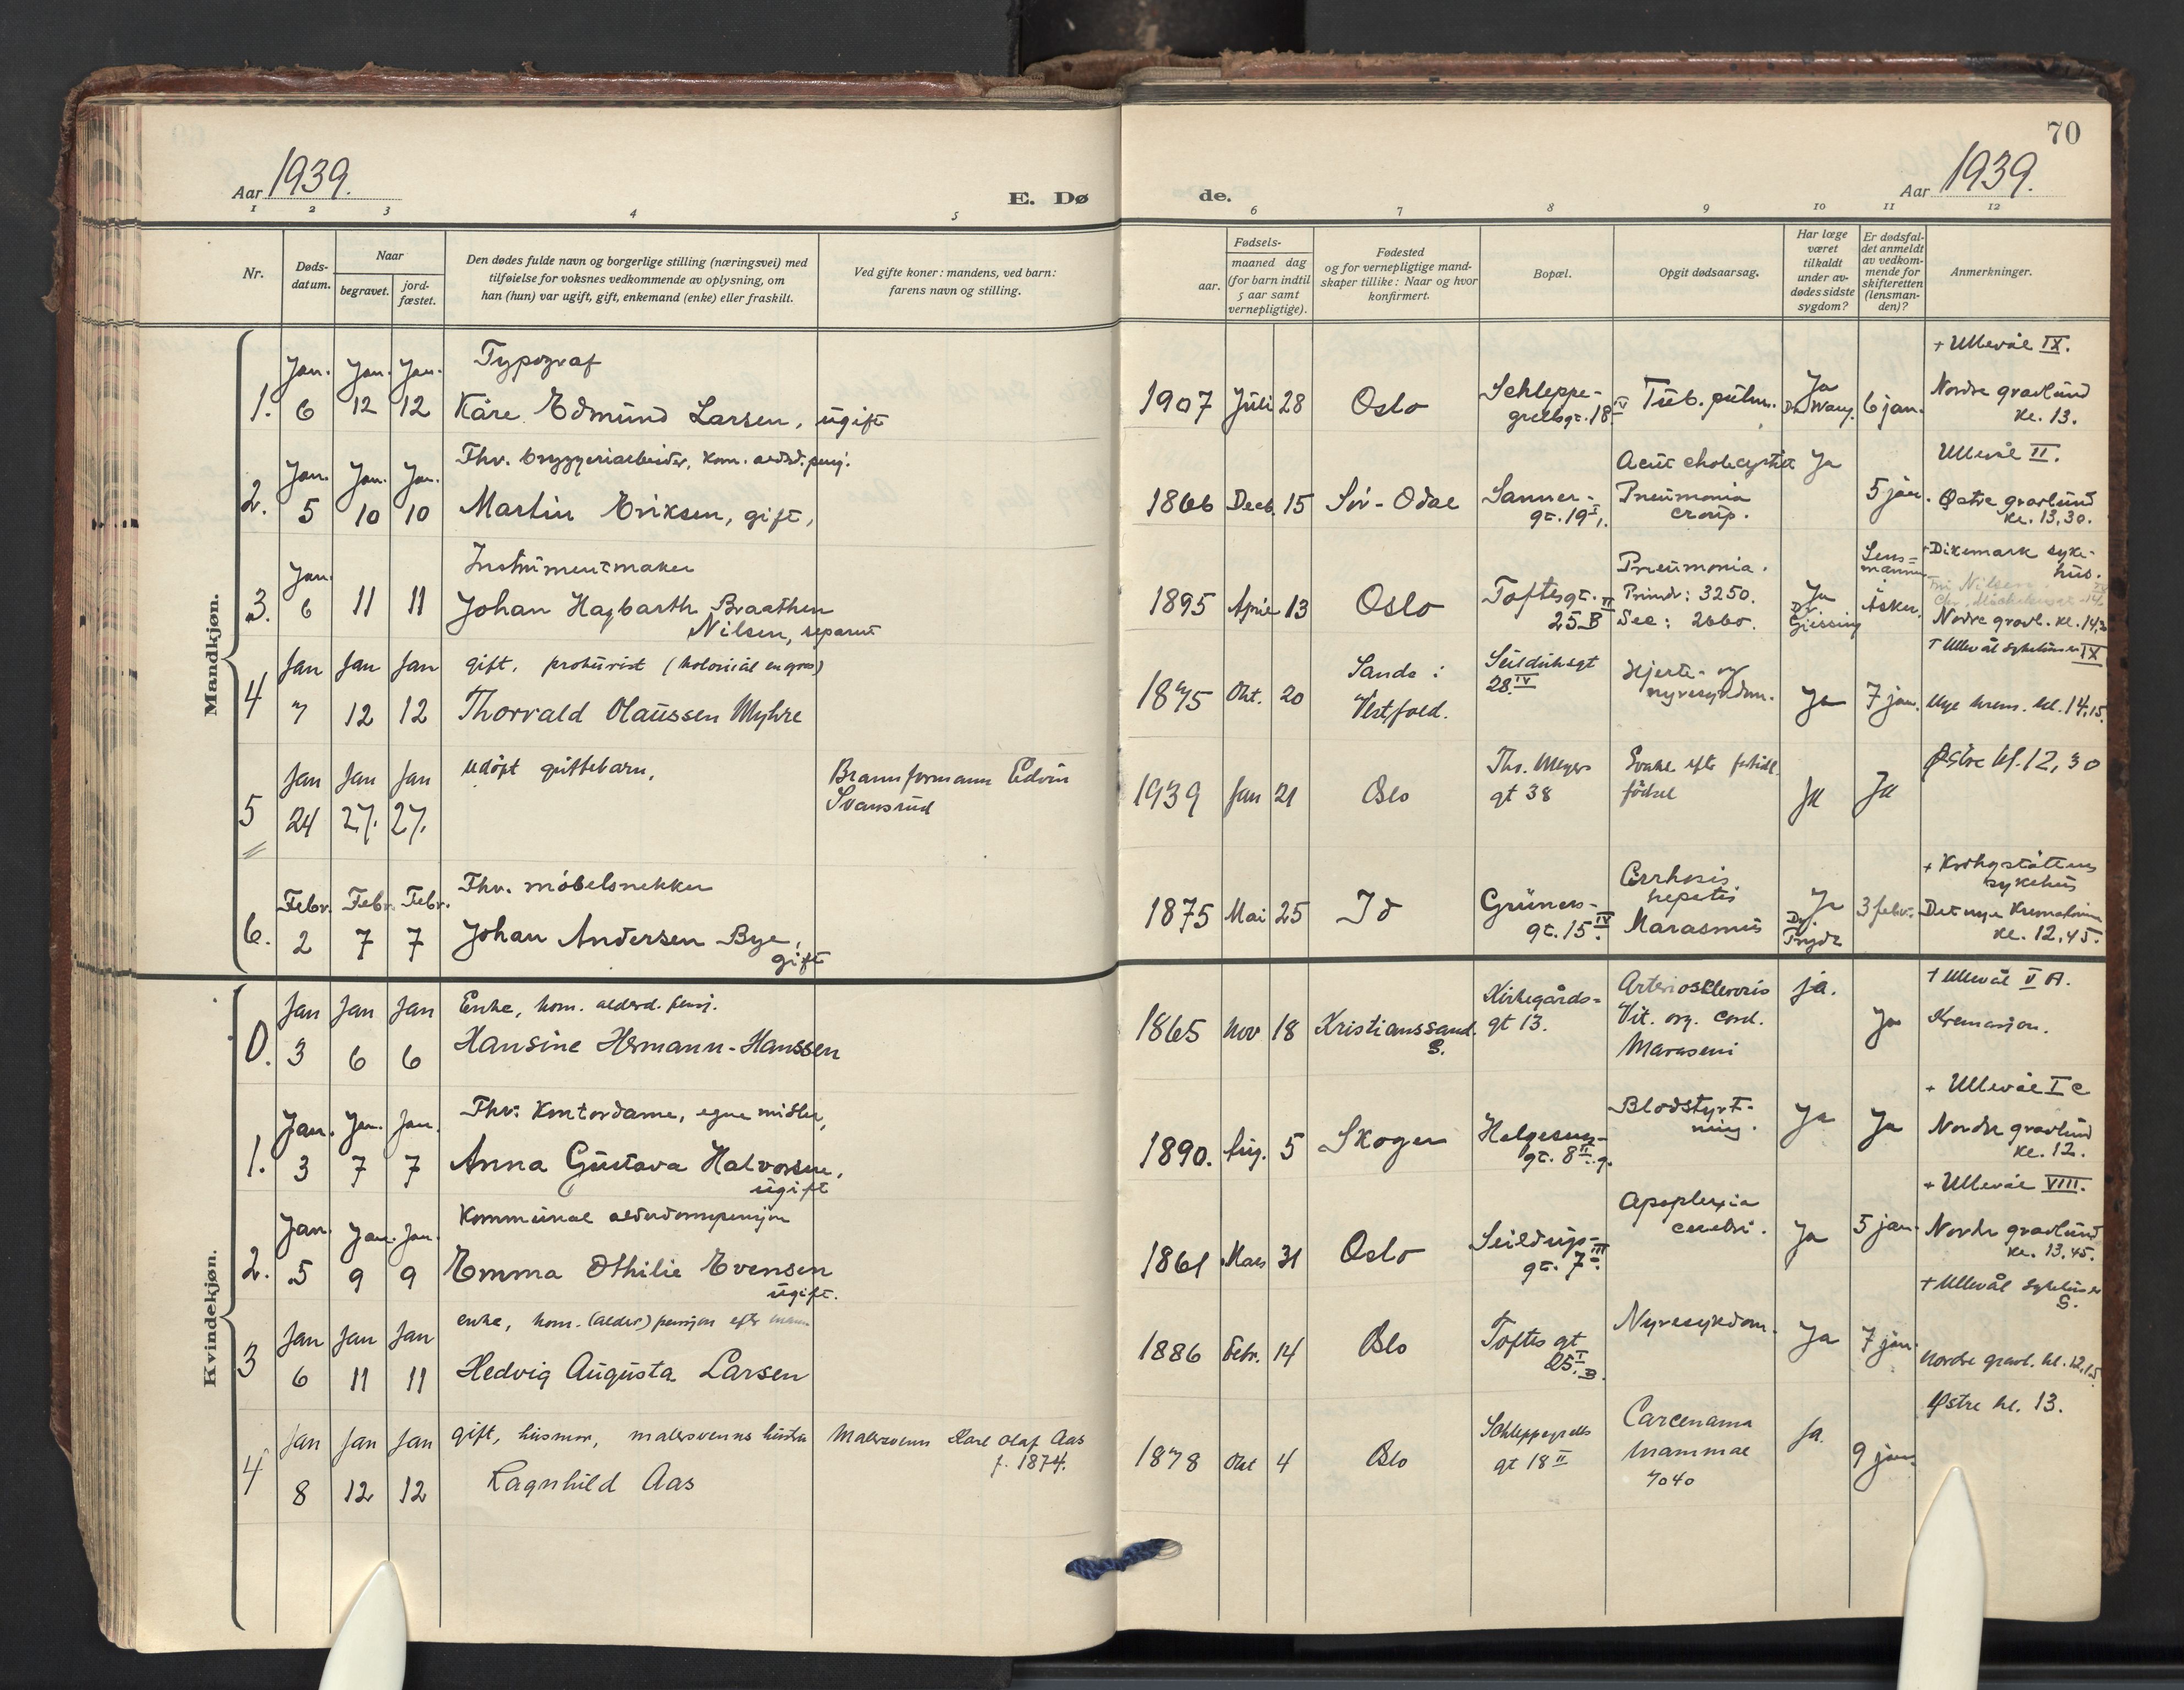 70
Aar 1939.
E. Dø
de.
Aar 1939.
1 2 3 4 5 6 7 8 9 10 11 12
Nr.
Døds-
datum.
Naar
begravet.
jord-
fæstet.
Den dødes fulde navn og borgerlige stilling (næringsvei) med
tilføielse for voksnes vedkommende av oplysning, om
han (hun) var ugift, gift, enkemand (enke) eller fraskilt.
Ved gifte koner: mandens, ved barn:
farens navn og stilling.
Fødsels-
aar.
maaned dag
(for barn indtil
5 aar samt
vernepligtige).
Fødested
og for vernepligtige mand-
skaper tillike: Naar og hvor
konfirmert.
Bopæl.
Opgit dødsaarsag.
Har læge
været
tilkaldt
under av-
dødes sidste
sygdom?
Er dødsfal-
det anmeldt
av vedkom-
mende for
skifteretten
(lensman-
den)?
Anmerkninger.
Mandkjøn.
1.
Jan. 6
Jan. 12
Jan. 12
Typograf
Kåre Edmund Larsen, ugift
1907 Juli 28
Oslo
Schleppe-
grellsgt. 18 IV
Tub. pulm.
Ja
6 jan.
+ Ullevål IX.
Nordre gravlund
kl. 13.
2.
Jan. 5
Jan. 10
Jan. 10
Fhv. bryggeriarbeider, kom. aldrd. pensj.
Martin Eriksen, gift,
1866 Decb. 15
Sør-Odal
Sanner-
gt. 19 I.
Acut cholecystit
Pneumonia
croup.
Ja
5 jan.
Ullevål II.
Østre gravlund
kl. 13,30.
3.
Jan. 6
11
11
Instrumentmaker
Johan Hagbarth Braathen
Nilsen, separert
1895 April 13
Oslo
Toftesgt. II
25 B
Pneumonia.
Primdr: 3250.
See: 2660.
Ja
Dr.
Giessing
Lens-
mannen
Asker.
+ Dikemark syke-
hus.
Nordre gravl. kl. 14,30
4
Jan 7
Jan 12
Jan 12
gift, prokurist (kolonial engros)
Thorvald Olaussen Myhre
1875 Okt. 20
Sande i
Vestfold.
Seilduksgt
28 IV
Hjerte- og
nyresykdom.
Ja
7 jan.
+ Ullevål sykehus IX
Nye krem. kl. 14,15.
5
Jan 24
Jan 27.
Jan 27.
udøpt guttebarn,
Brannformann Edvin
Svansrud
1939 Jan 21
Oslo
Ths. Meyers
gt 38
Svake efter fortidl.
fødsel
Ja
Ja
Østre kl. 12,30
6.
Febr. 2
Febr. 7
Febr. 7
Fhv. møbelsnekker
Johan Andersen Bye,
gift
1875 Mai 25
Id
Grüners-
gt. 15 IV
Cirrhosis
hepatis
Marasmus
Ja
Dr.
3 febr.
+ Krohgstøttens
sykehus
Det nye Krematorium
kl. 12,45.
Kvindekjøn.
0.
Jan 3
Jan 6
Jan 6
Enke, kom. alderd. pensj.
Hansine Hermann-Hanssen
1865 Nov 18
Kristianssand.
S.
Kirkegårds-
gt 13.
Arteriosclerosis
Vit. org. cord.
Marasmi
ja.
Ja
+ Ullevål V A.
Kremasjon.
1.
Jan. 3
Jan. 7
Jan. 7
Fhv. kontordame, egne midler,
Anna Gustava Halvorsen,
ugift
1890. Aug. 5
Skoger
Helgesens-
gt. 8 II.
Blodstyrt-
ning.
Ja
Ja
+ Ullevål I c
Nordre gravlund
kl. 12.
2.
Jan. 5
Jan. 9
Jan. 9
Kommunal alderdomspensjon
Emma Othilie Evensen
ugift.
1861 Mars 31
Oslo
Seildugs- III
gt. 7.
Apoplexia
cerebri.
Ja
5 jan.
+ Ullevål VIII.
Nordre gravlund
kl. 13,45.
3
Jan 6
Jan 11
Jan 11
enke, kom. (alder) pensjon efter mann
Hedvig Augusta Larsen
1886 Febr. 14
Oslo
Toftes gt
25 I B.
Nyresykdom.
Ja
7 jan.
+ Ullevål sykehus
S.
Nordre gravl. kl. 12,15
4
Jan 8
Jan 12
Jan 12
gift, husmor, malersvenns hustru
Ragnhild Aas
Malersvenn Karl Olaf Aas
f. 1874.
1878 Okt 4
Oslo
Schleppegrells
gt 18 II
Carcenama
mammae
7040
Ja.
9 jan.
Østre kl. 13.